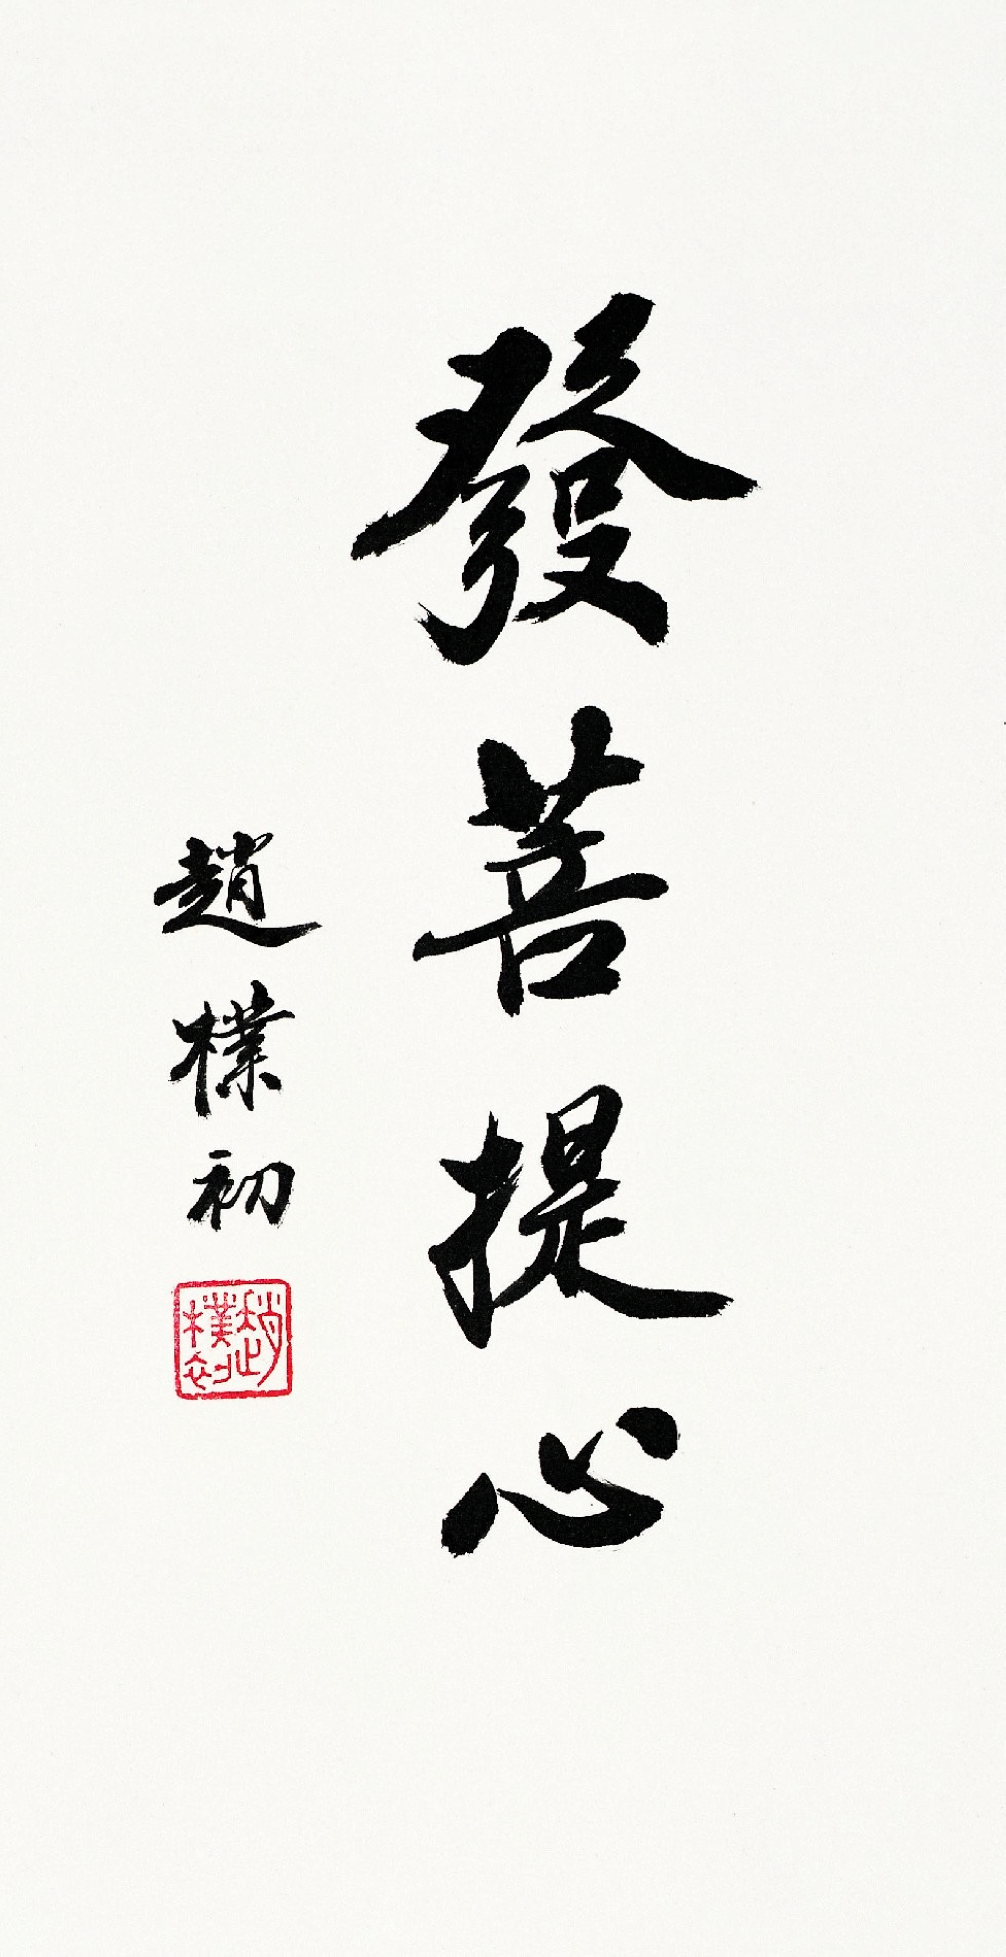 發菩提心
趙樸初
趙樸初